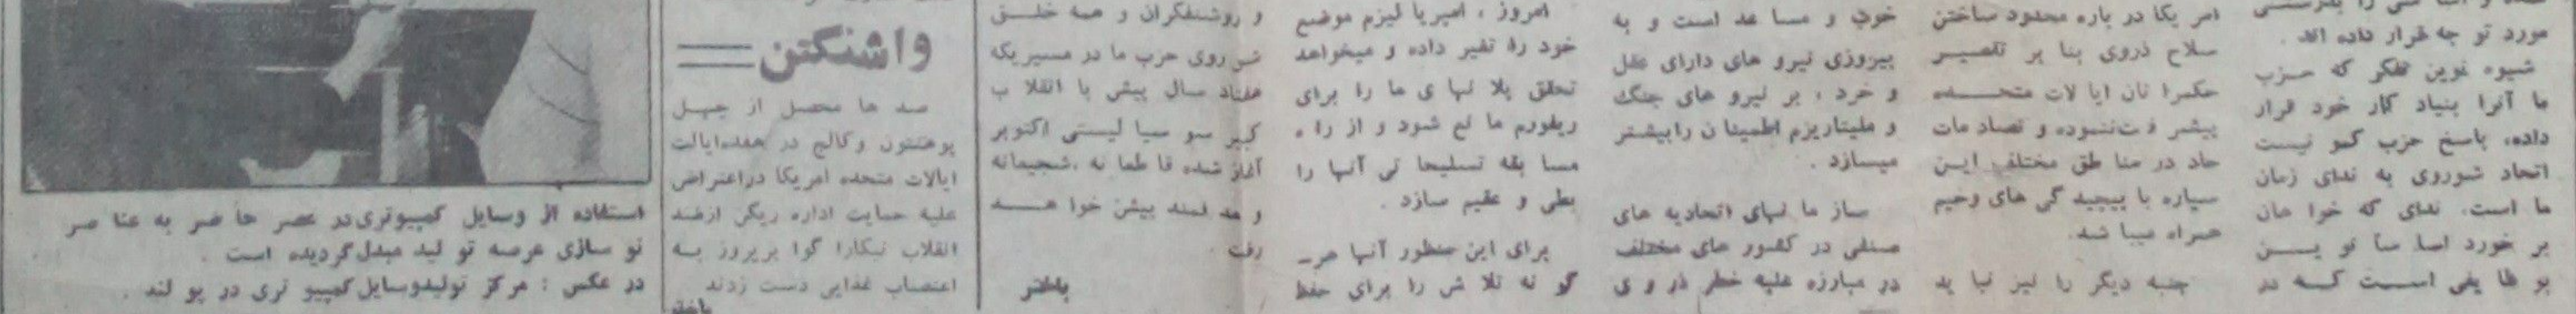 مورد تو جه قرار داده اند .
شیوه نوین تفکر که حزب
ما آنرا بنیاد کار خود قرار
داده، پاسخ حزب کمو نیست
اتحاد شوروی به ندای زمان
ما است، ندای که خوا هان
بر خورد اسا سا نو یــن
بو ظا یفی اســت کــه در
امر یکا در باره محدود ساختن
سلاح ذروی بنا بر تقصیــر
حکمرا نان ایا لات متحــده
پیشر فت ننموده و تصاد مات
حاد در منا طق مختلف ایــن
سیاره با پیچید گی های وخیم
همراه میبا شد.
جنبه دیگر را نیز نبا ید
خوب و مسا عد است و به
پیروزی نیرو های دارای عقل
و خرد ، بر نیرو های جنگ
و ملیتاریزم اطمینا ن رابیشتر
میسازد .
ساز ما نهای اتحادیه های
صنفی در کشور های مختلف
در مبارزه علیه خطر ذر و ی
امروز ، امپریا لیزم موضع
خود را تغیر داده و میخواهد
تحقق پلا نها ی ما را برای
ریفورم ما نع شود و از را ه
مسا بقه تسلیحا تی آنها را
بطی و عقیم سازد .
برای این منظور آنها هر ـ
گو نه تلا ش را برای حفظ
و روشنفکران و همه خلــق
شو روی حزب ما در مسیریکه
هفتاد سال پیش با انقلا ب
کبیر سو سیا لیستی اکتوبر
آغاز شده قا طعا نه ،شجیعانه
و هد فمند پیش خوا هــد
رفت .
باختر
واشنگتن
صد ها محصل از چهــل
پوهنتون وکالج در هفده ایالت
ایالات متحده امریکا دراعتراض
علیه حمایت اداره ریگن ازضد
انقلاب نیکارا گوا پریروز بــه
اعتصاب غذایی دست زدند
باختر
استفاده از وسایل کمپیوتری در عصر حا ضر به عنا صر
نو سازی عرصه تو لید مبدل گردیده است .
در عکس : مرکز تولید وسایل کمپیو تری در پو لند .